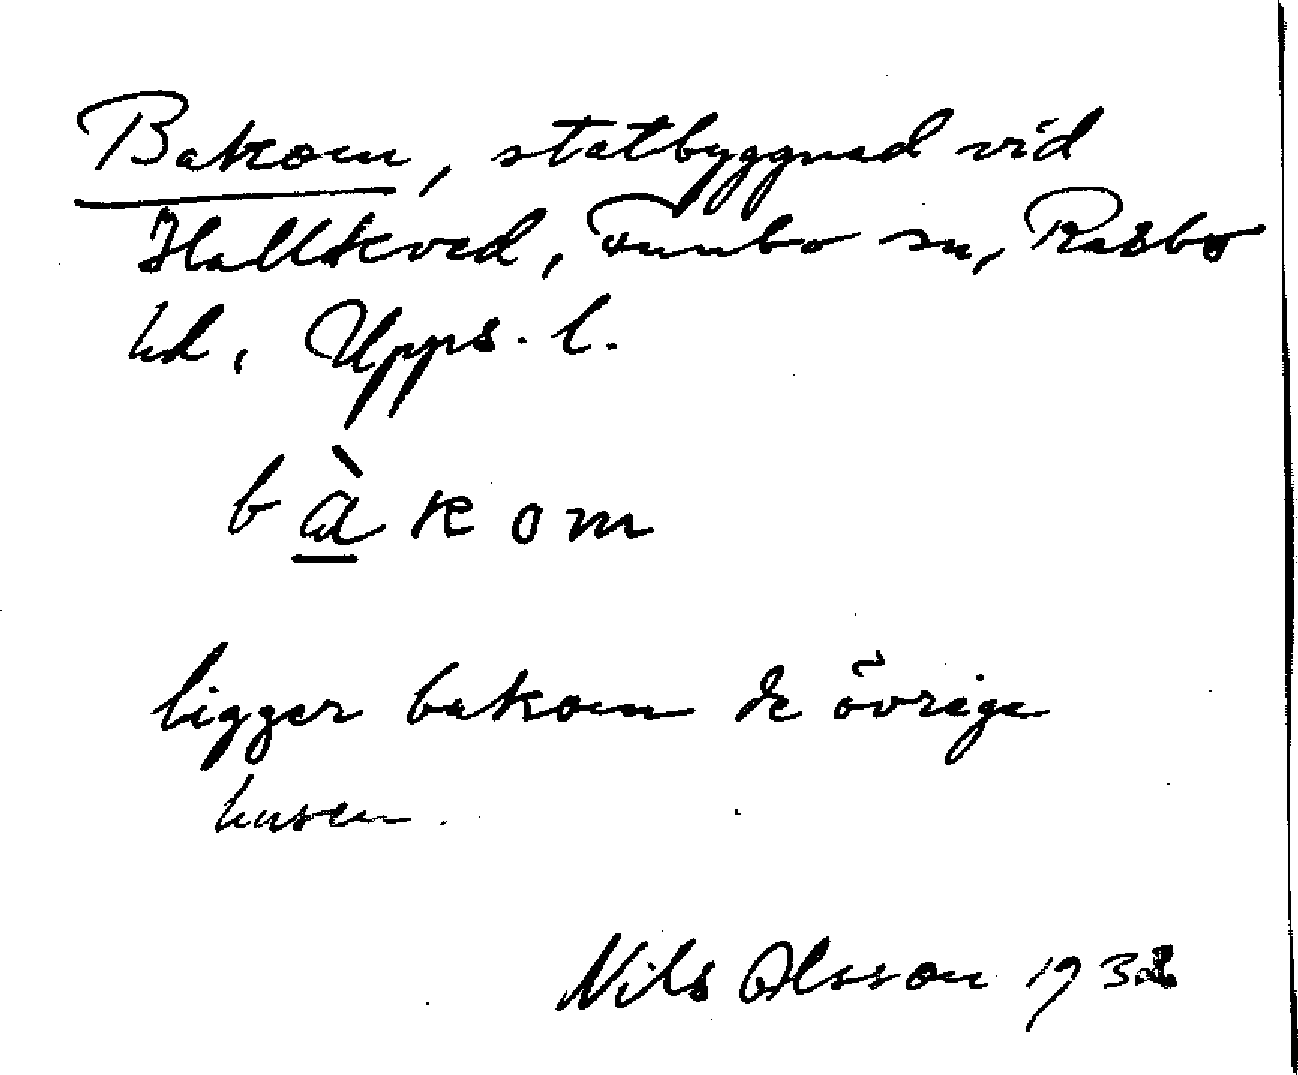 Bakom, statbyggnad vid
Hallkved, Funbo sn, Rasbo
hd, Upps. l.
bàkom
ligger bakom de övriga
husen.
Nils Olsson 1932